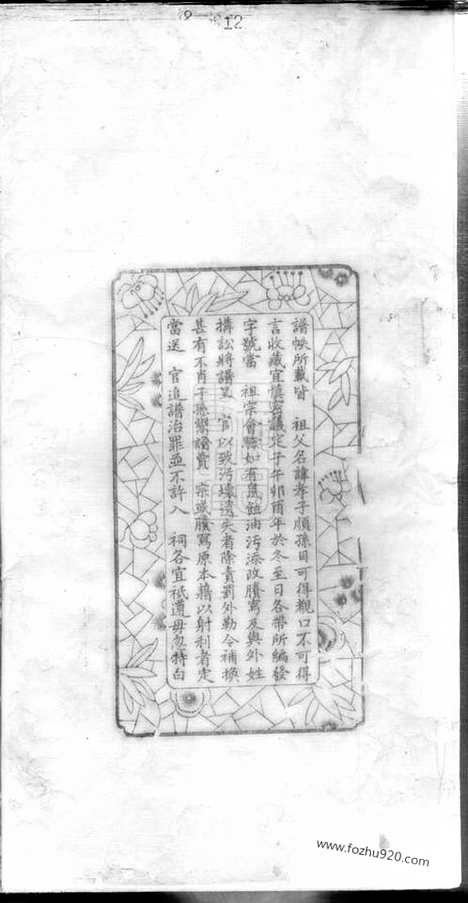 12
譜帙所載皆 祖父名諱孝子順孫目可得觀口不可得
言收藏宜慎密議定子午卯酉年於冬至日各帶所編發
字號當 祖宗會驗如有鼠蝕油污添改謄寫及與外姓
搆訟將譜呈 官以致污壞遺失者除責罰外勒令補換
甚有不肖子孫鬻譜賣 宗或謄寫原本藉以射利者定
當送 官追譜治罪並不許入 祠各宜祇遵毋忽特白
www.fozhu920.com